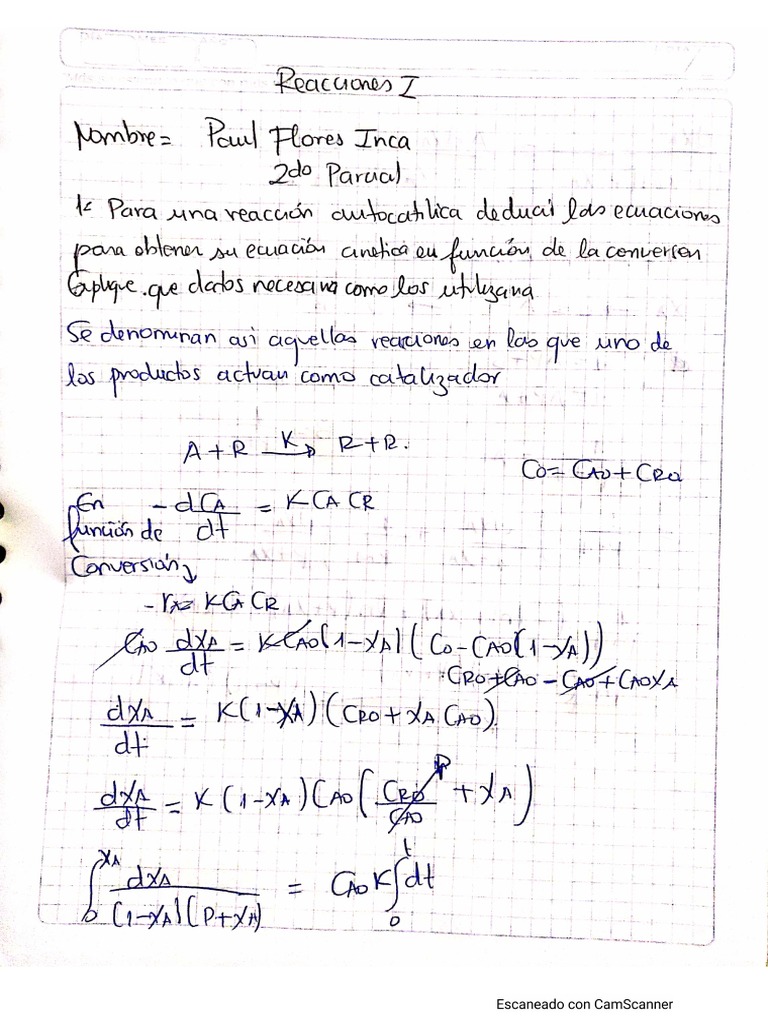 Reacciones I
Nombre= Paul Flores Inca
2do Parcial
1: Para una reacción autocatilica deducir las ecuaciones
para obtener su ecuación cinetica en función de la conversen
Explique que datos necesaria como los utilizaria
Se denominan asi aquellas reacciones en las que uno de
los productos actuan como catalizador
A + R —K→ R + R.
C0 = CA0 + CR0
En función de Conversión
- dCA/dt = K CA CR
- rA = K CA CR
CA0 dXA/dt = K CA0 (1-XA) (C0 - CA0(1-XA))
CR0 + CA0 - CA0 + CA0XA
dXA/dt = K(1-XA) (CR0 + XA CA0)
dXA/dt = K (1-XA) CA0 (CR0/CA0 + XA) P
∫0^XA dXA/((1-XA)(P+XA)) = CA0 K ∫0^t dt
Escaneado con CamScanner